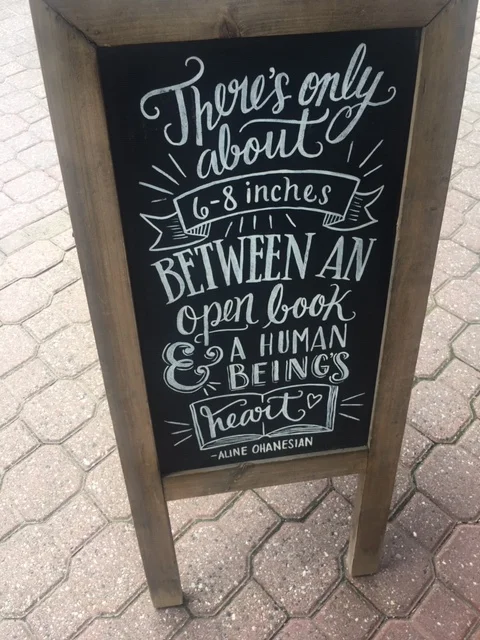 There's only
about
6-8 inches
BETWEEN AN
open book
& A HUMAN
BEING'S
heart
-ALINE OHANESIAN